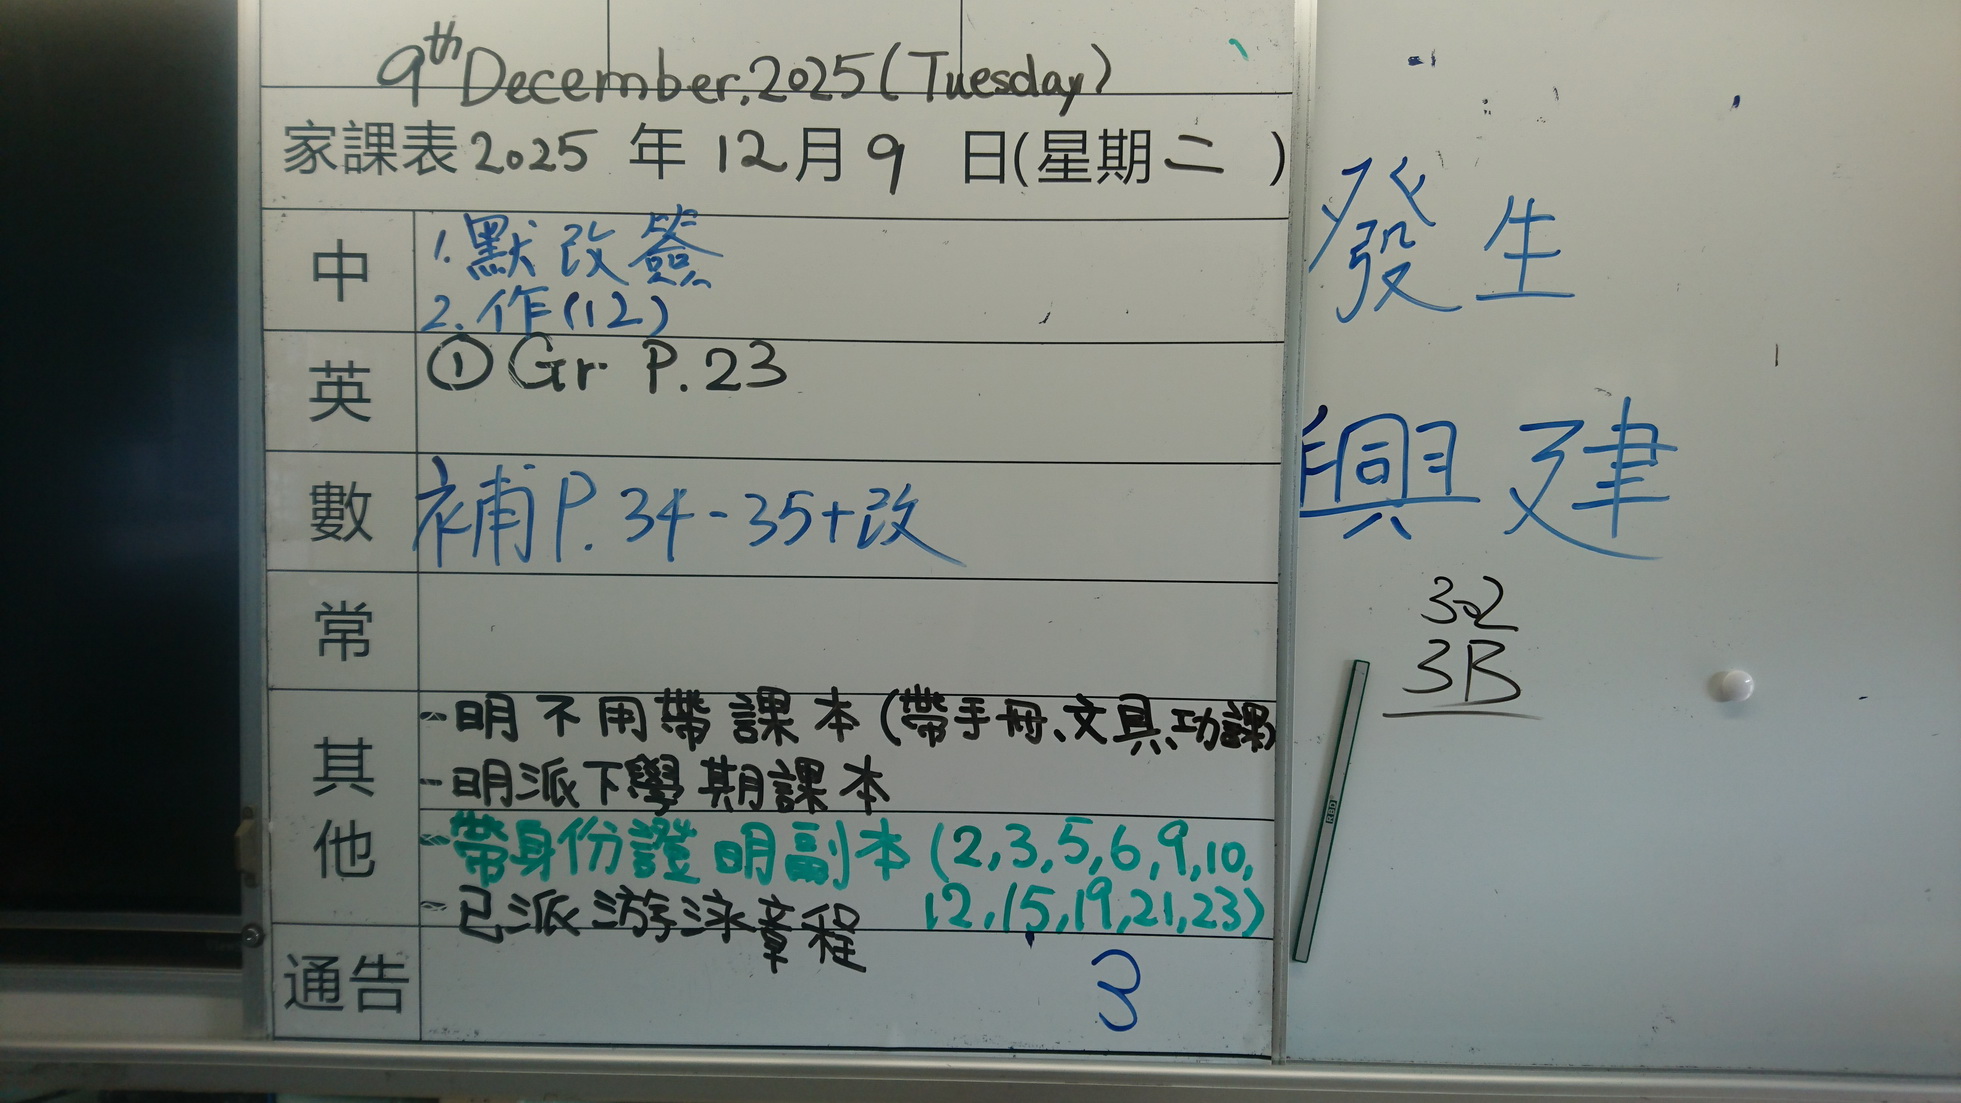 9th December, 2025 (Tuesday)
家課表 2025 年 12 月 9 日(星期二 )
中
1. 默改簽
2. 作(12)
英
① Gr P.23
數
補 P. 34 - 35 + 改
常
其他
- 明不用帶課本 (帶手冊、文具、功課)
- 明派下學期課本
- 帶身份證明副本 (2, 3, 5, 6, 9, 10,
12, 15, 19, 21, 23)
- 已派游泳章程
通告
3
發生
興建
32
3B